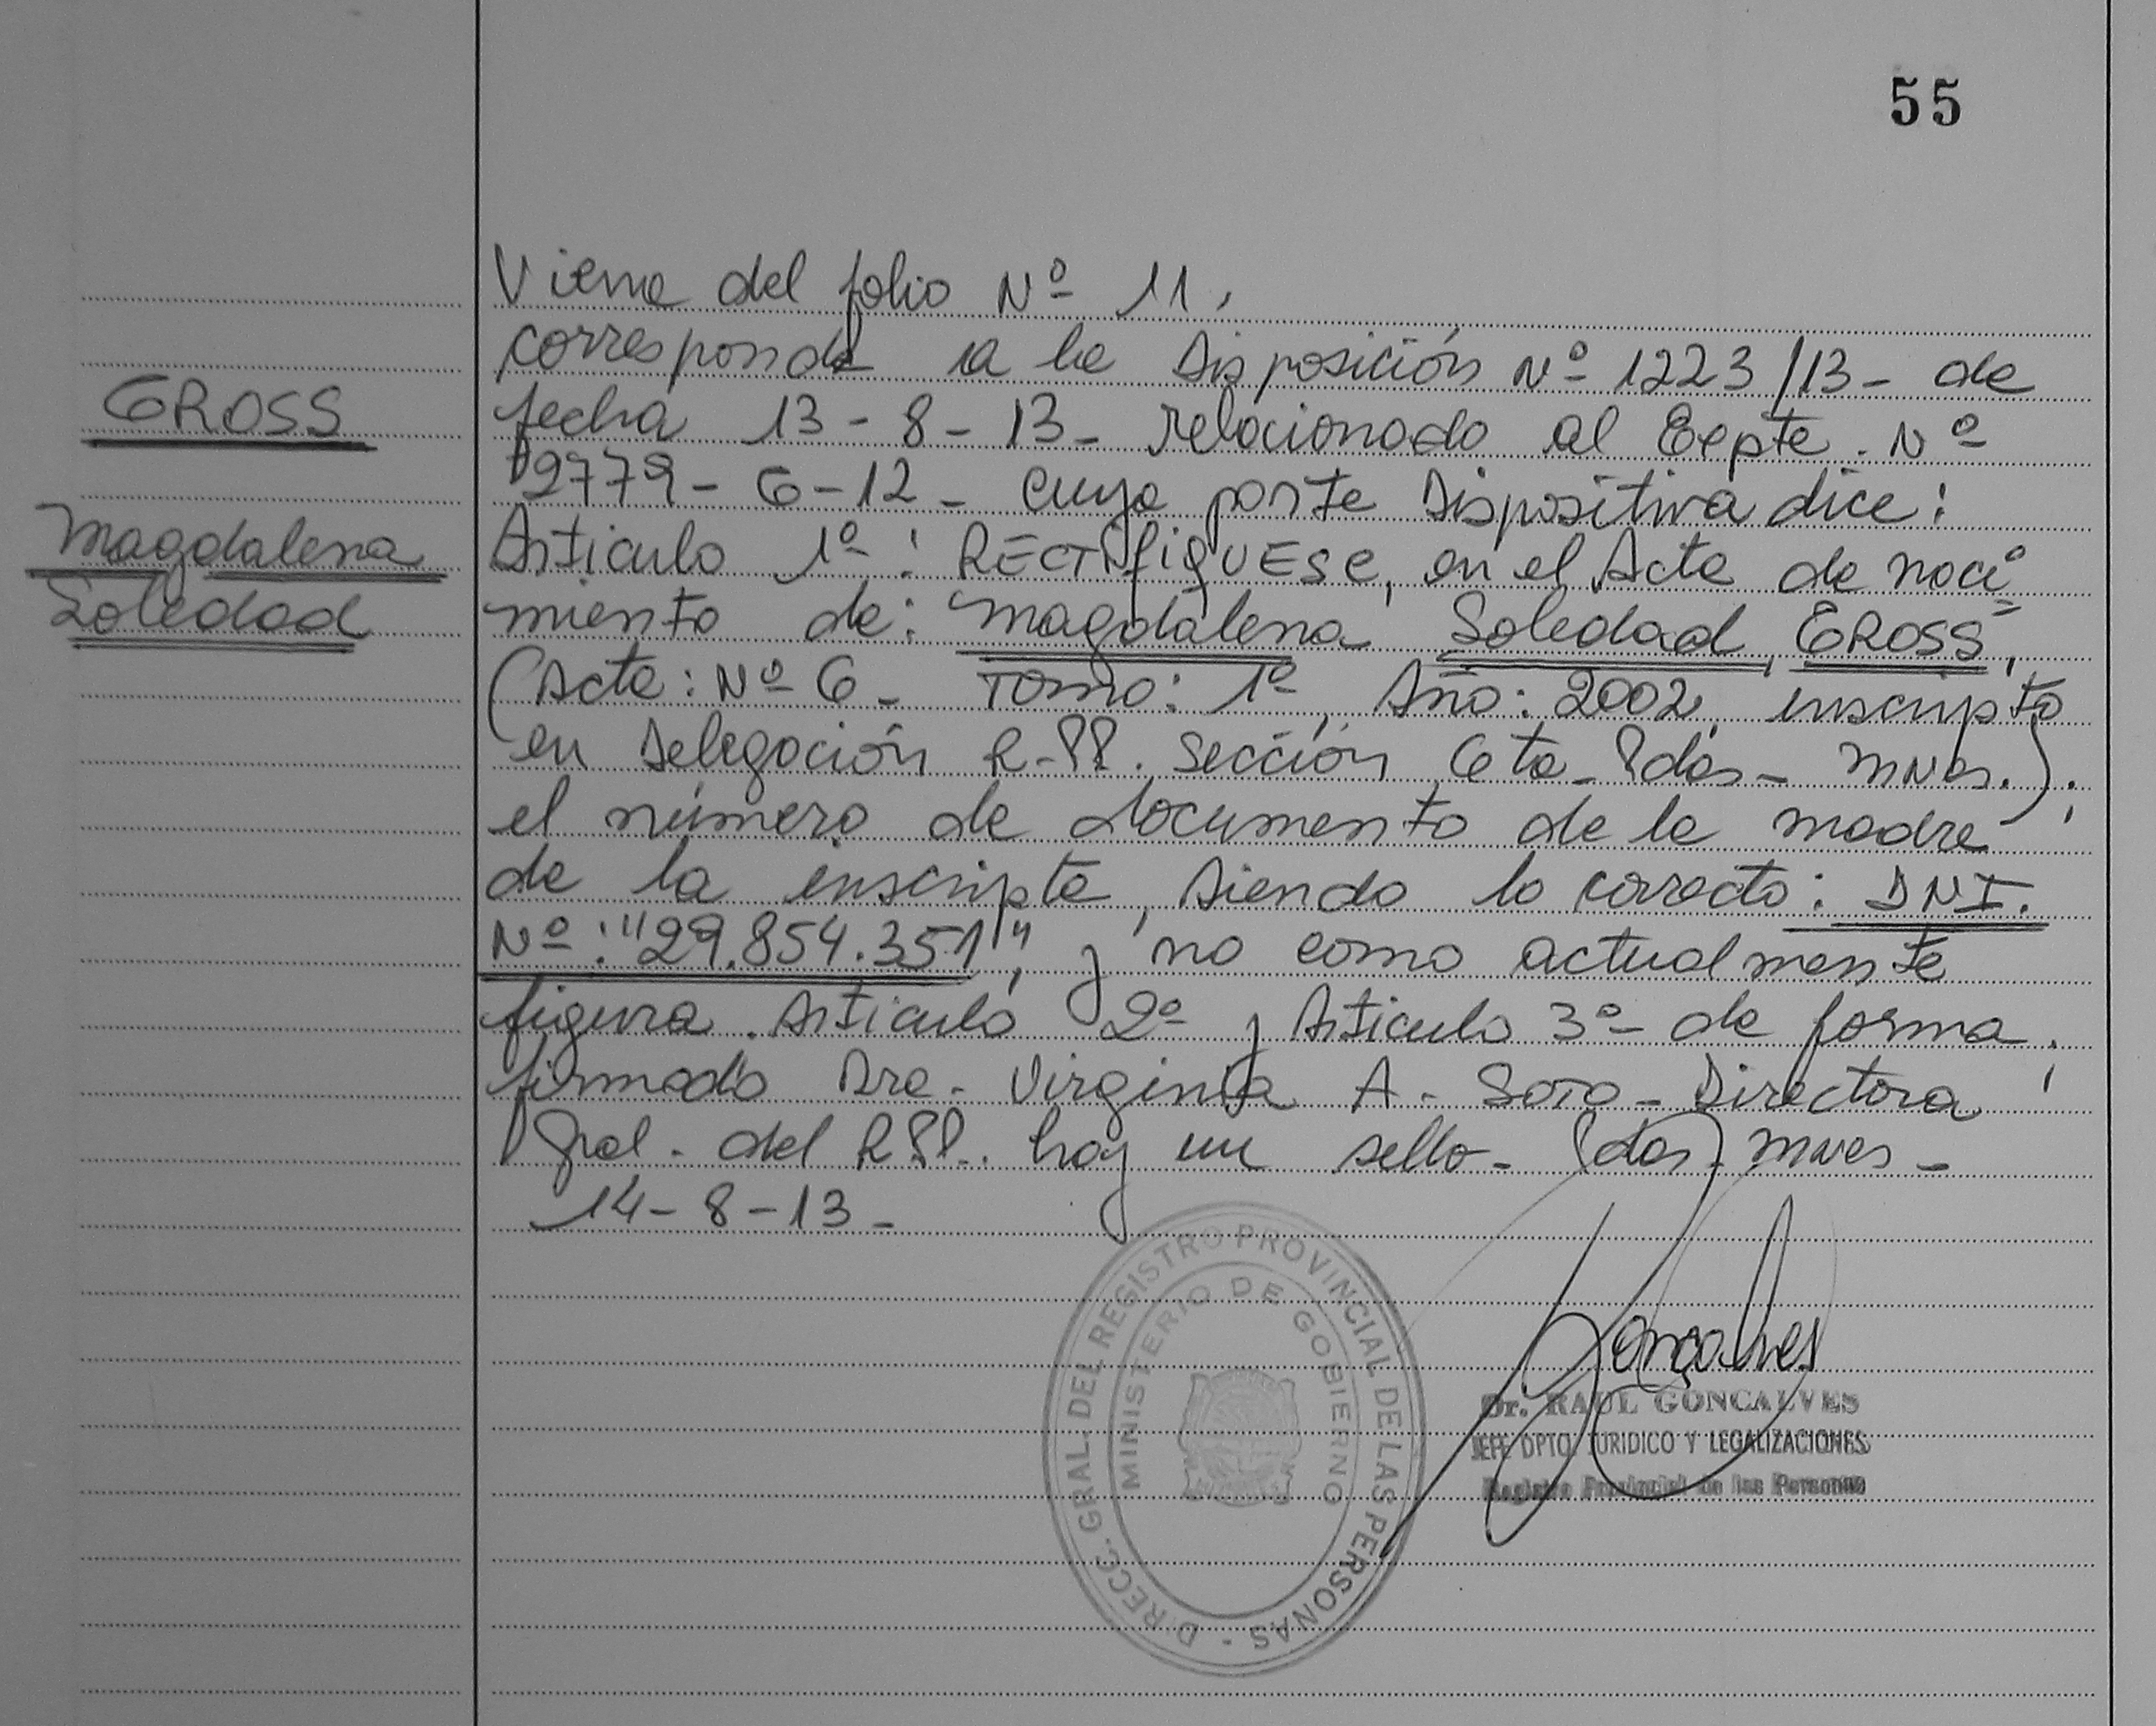 55
Viene del folio Nº 11,
corresponde a la Disposición Nº 1223/13- de
GROSS
fecha 13-8-13- relacionado al Expte. Nº
2779-G-12- cuya parte Dispositiva dice:
Magdalena
Articulo 1º: RECTIFIQUESE, en el Acta de naci
Soledad
miento de: Magdalena Soledad, GROSS,
(Acta: Nº 6- Tomo: 1º, Año: 2002, inscripto
en Delegación R-PP. Sección 6ta- Pdas- Mnes.);
el número de documento de la madre
de la inscripta, siendo lo correcto: DNI.
Nº: "29.854.351", y no como actualmente
figura. Articulo 2º y Articulo 3º- de forma.
firmado Dra. Virginia A. Soto- Directora
Gral. del RPP. hay un sello- Pdas- Mnes-
14-8-13-
DIRECC. GRAL. DEL REGISTRO PROVINCIAL DE LAS PERSONAS -
MINISTERIO DE GOBIERNO
Gonçalves
Dr. RAUL GONCALVES
JEFE DPTO. JURIDICO Y LEGALIZACIONES
Registro Provincial de las Personas